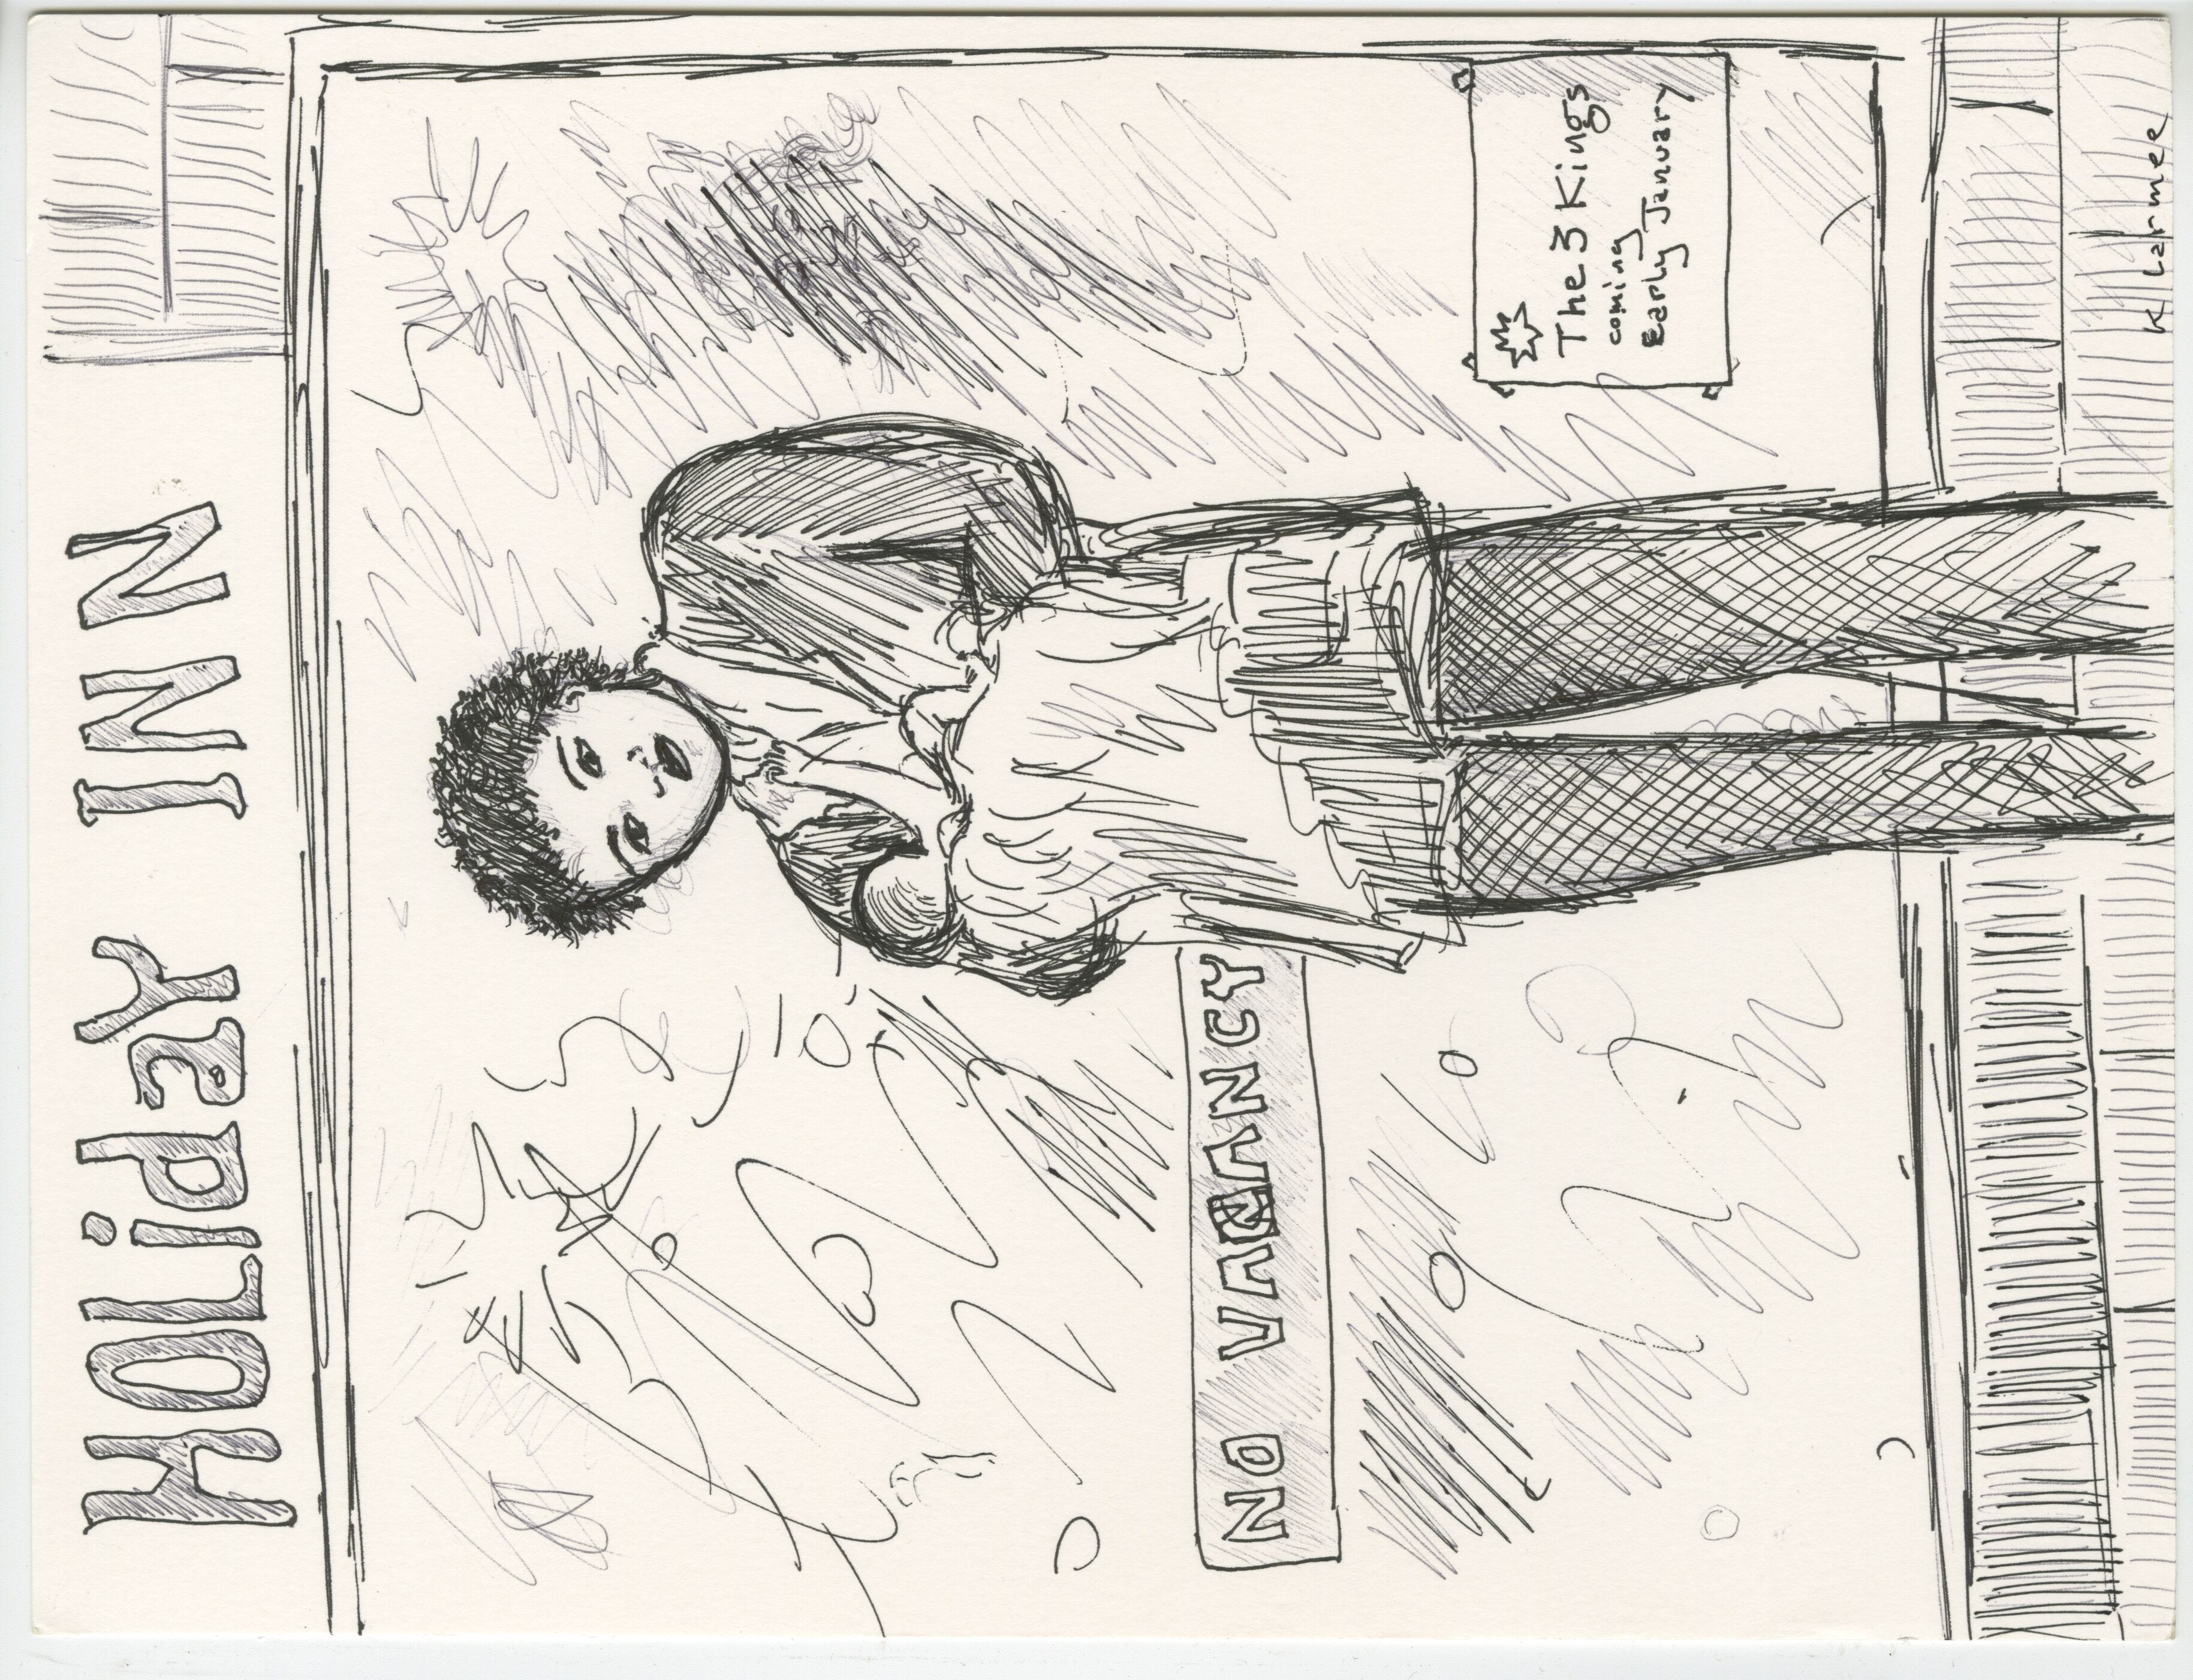 HOLidaY INN
NO VACANCY
The 3 Kings
coming
Early January
K Larmee